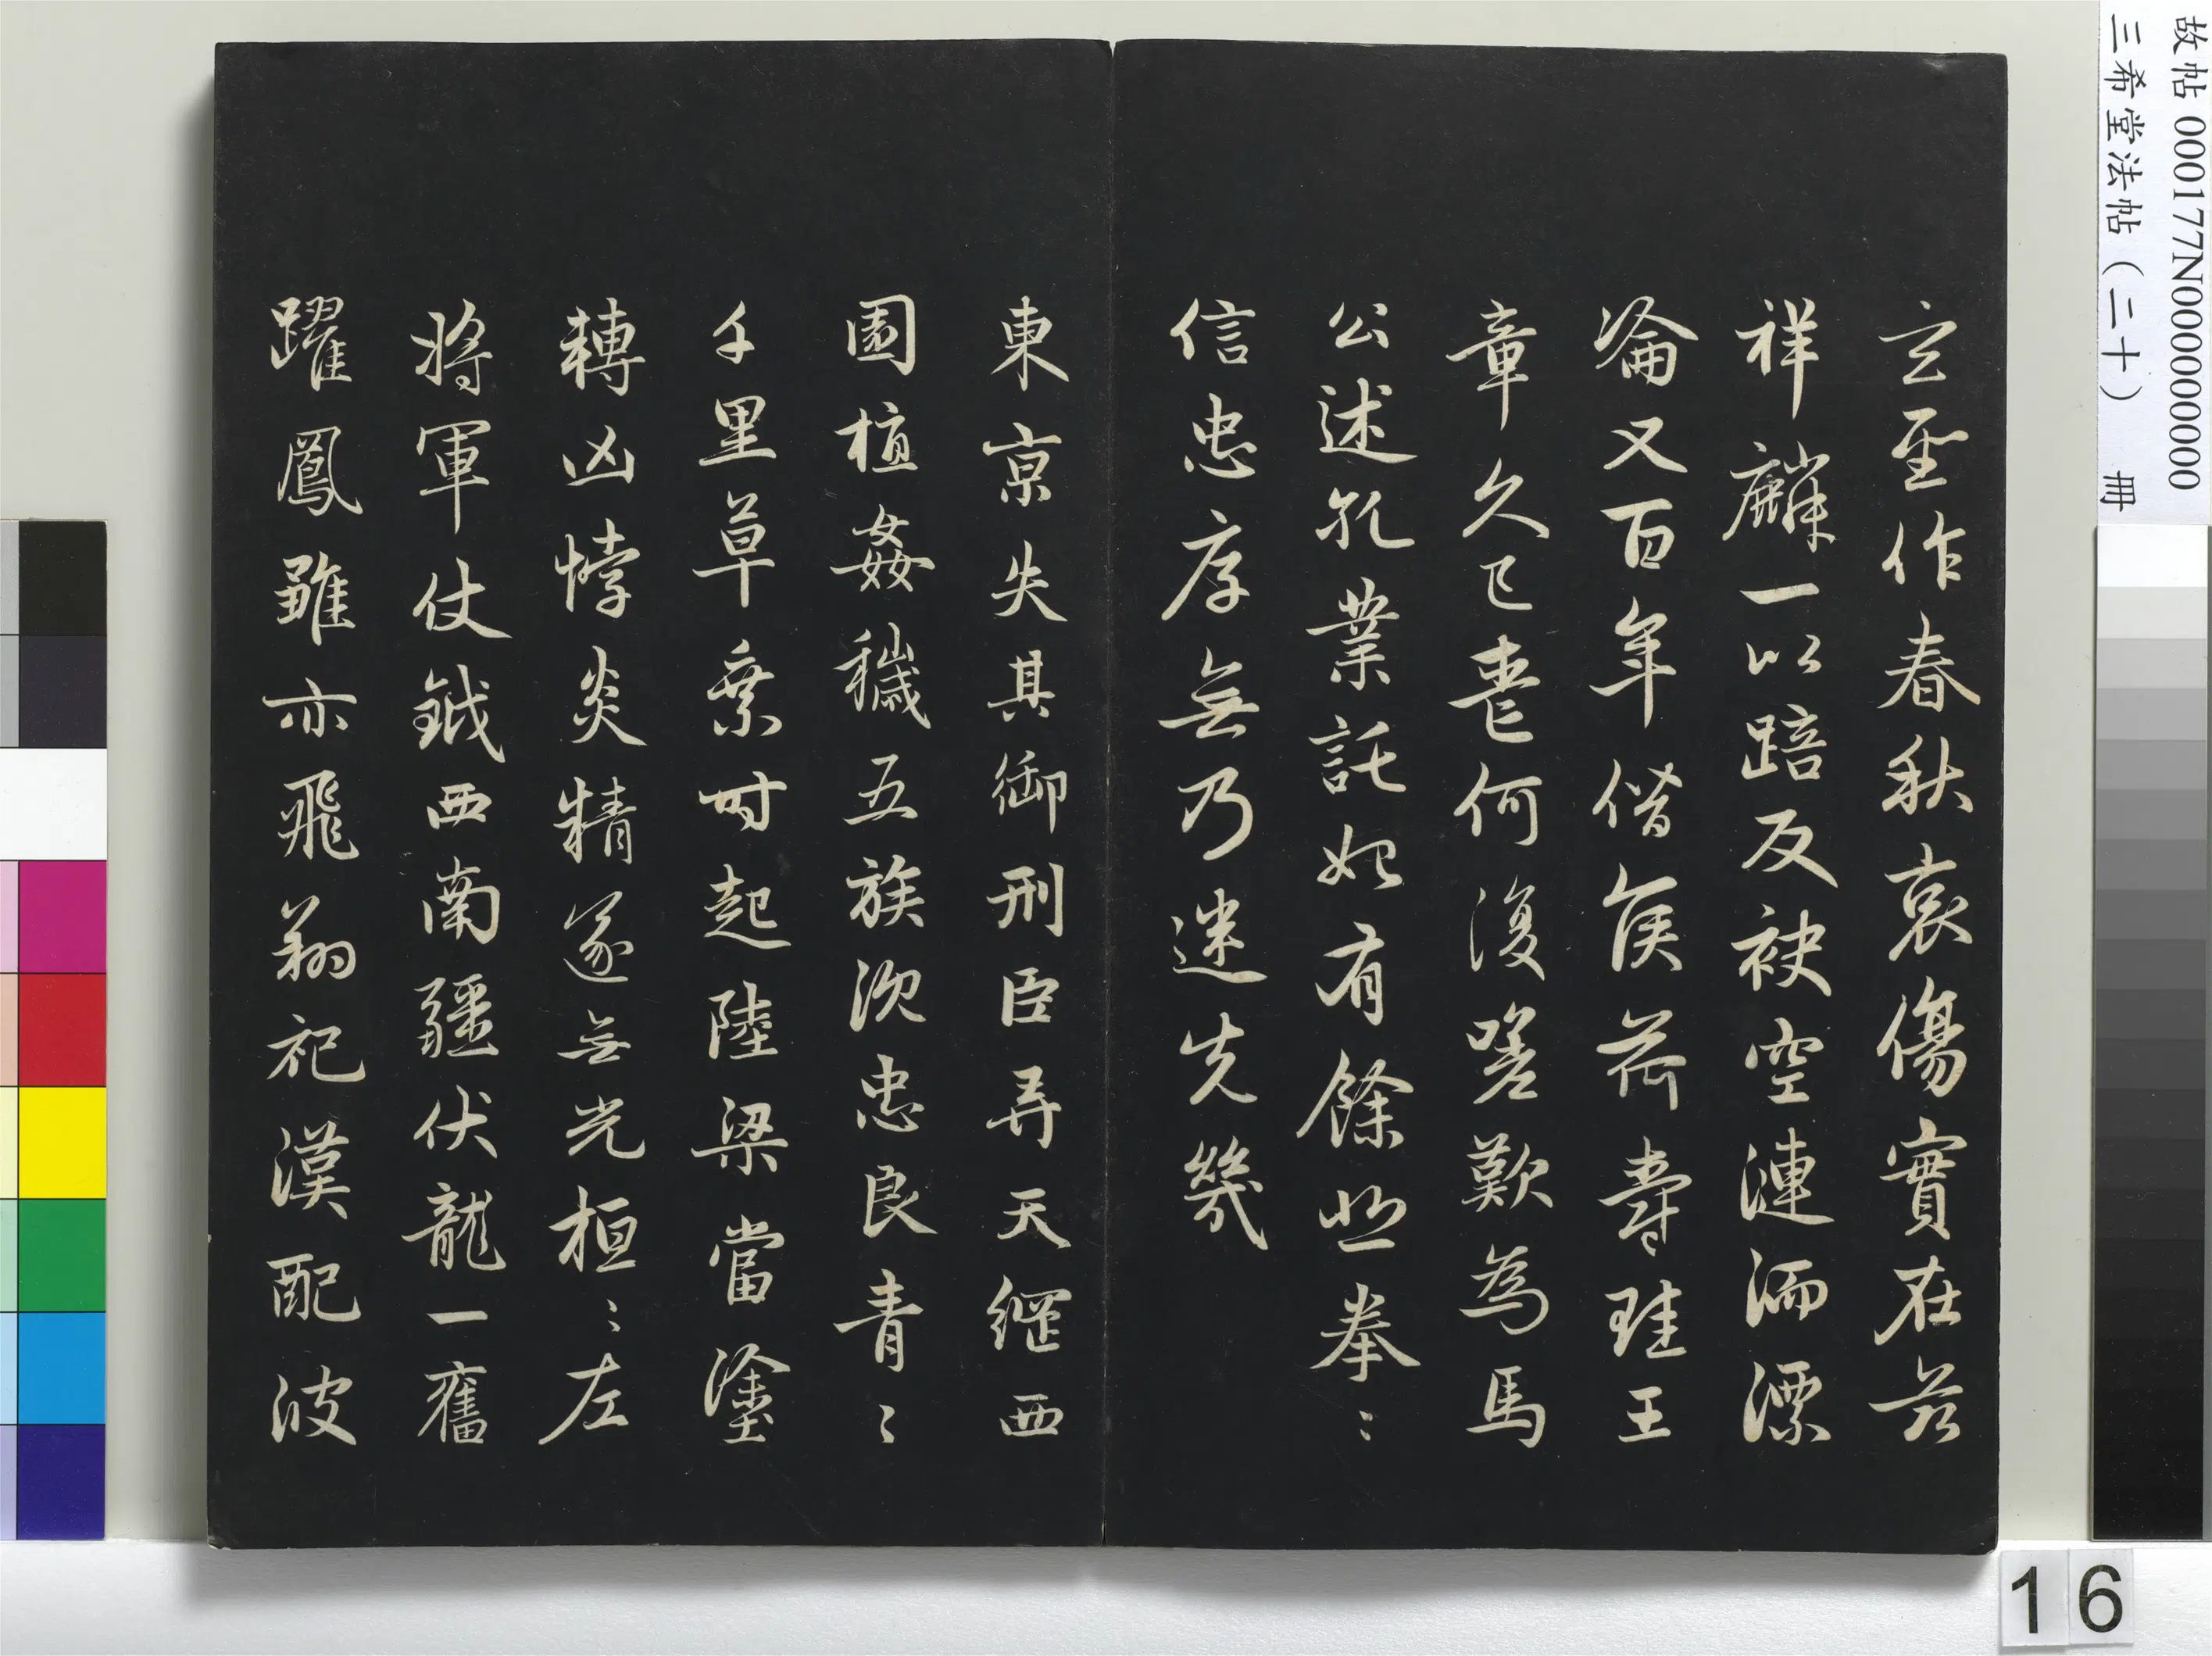 玄聖作春秋哀傷實在茲
祥麟一以踣反袂空漣洏漂
淪又百年僭侯荷爵珪王
章久已喪何復嗟歎為馬
公述孔業託始有餘悲拳〻
信忠厚無乃迷先幾
東京失其御刑臣弄天綱西
園植姦穢五族沉忠良青〻
千里草乘時起陸梁當塗
轉凶悖炎精遂無光桓〻左
將軍仗鉞西南疆伏龍一奮
躍鳳雖亦飛翔祀漢配彼
故帖 000177N000000000
三希堂法帖（二十） 冊
16